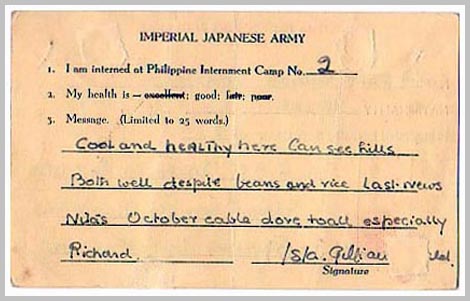 IMPERIAL JAPANESE ARMY
1. I am interned at Philippine Internment Camp No. 2
2. My health is — excellent; good; fair; poor.
3. Message. (Limited to 25 words.)
Cool and healthy here Can see hills
Both well despite beans and rice Last news
October cable love to all especially
Richard. /s/a. Gillian
Signature